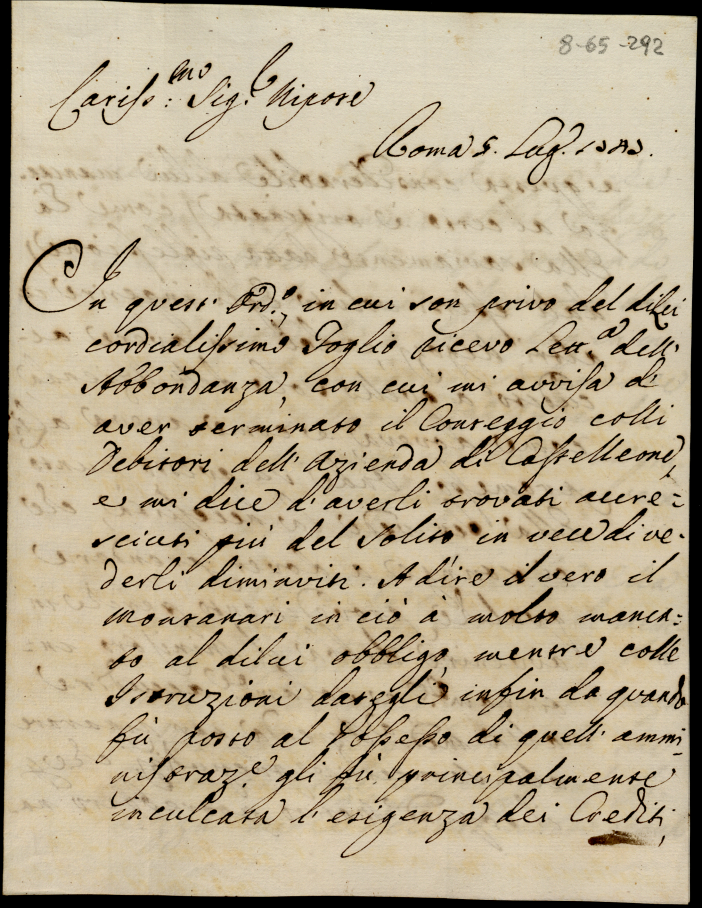 8-65-292
Cariss:mo Sig.r Nipote
Roma 5. Lug.
In quest' Ord.o, in cui son privo del di lei
cordialissimo Foglio ricevo Lett.a dell'
Abbondanza, con cui mi avvisa di
aver terminato il Conteggio colli
Debitori dell' Azienda di Castelleone,
e mi dice d'averli trovati accre-
sciuti più del solito in vece di ve-
derli diminuiti. A dire il vero il
Montanari in ciò à molto manca-
to al di lui obbligo, mentre colle
Istruzioni dategli infin da quando
fù posto al Possesso di quell' ammi-
nistraz.e gli fù principalmente
inculcata l'esigenza dei Crediti,